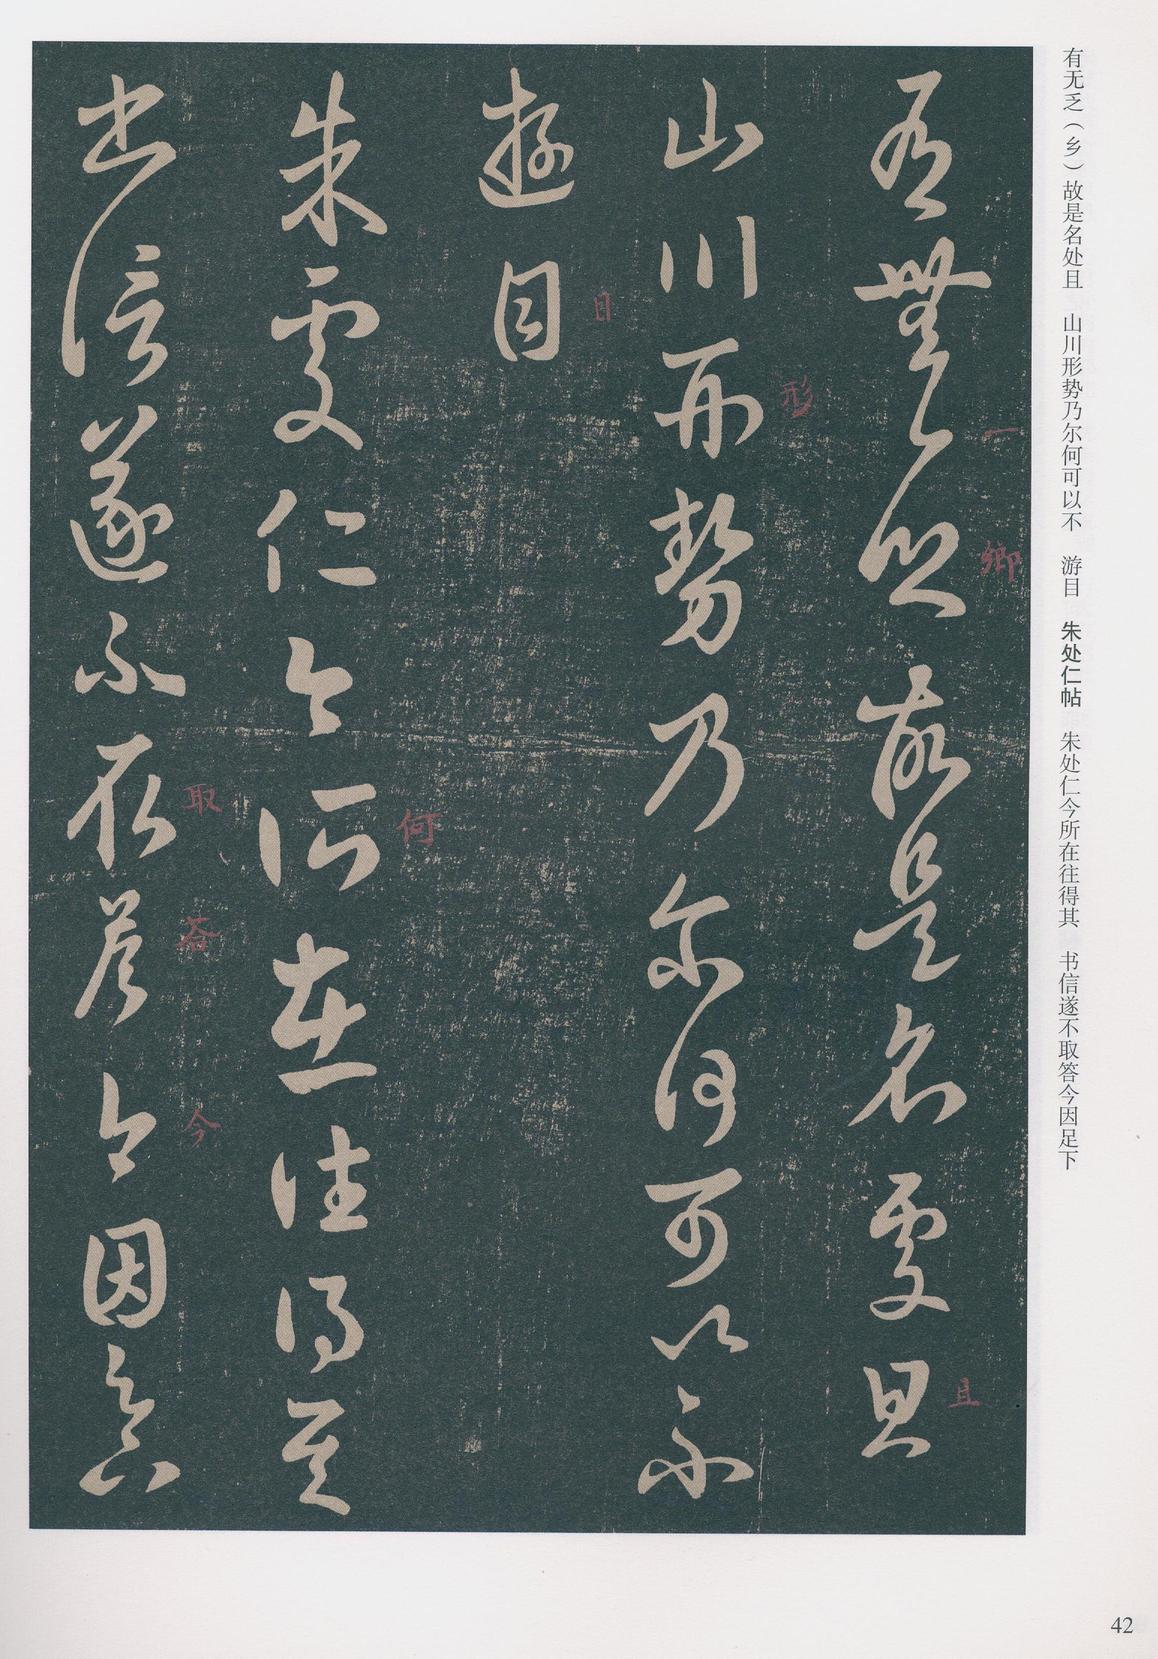 有无乏（乡）故是名处且　山川形势乃尔何可以不　游目　朱处仁帖　朱处仁今所在往得其　书信遂不取答今因足下
有無乏故是名處且
一
鄉
且
山川形勢乃尔何可以不
形
遊目
目
朱處仁今所在往得其
何
書信遂不取答今因足下
取
荅
今
42